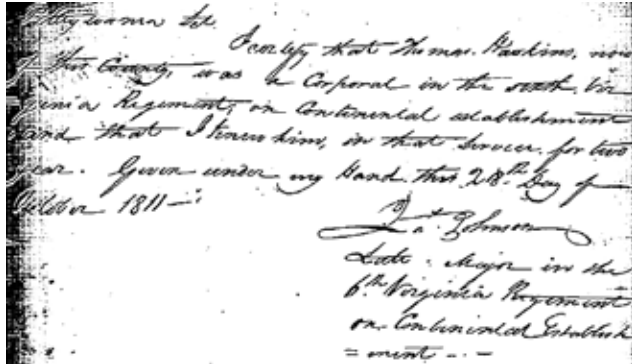 Pittsylvania Sct.
I certify that Thomas Haskins, now
of this County, was a Corporal in the sixth Vir
ginia Regiment, on Continental establishment
and that I knew him, in that Service for two
year. Given under my Hand this 28th Day of
October 1811 —
Johnson
Late Major in the
6th Virginia Regiment
on Continental Establish
= ment - . -